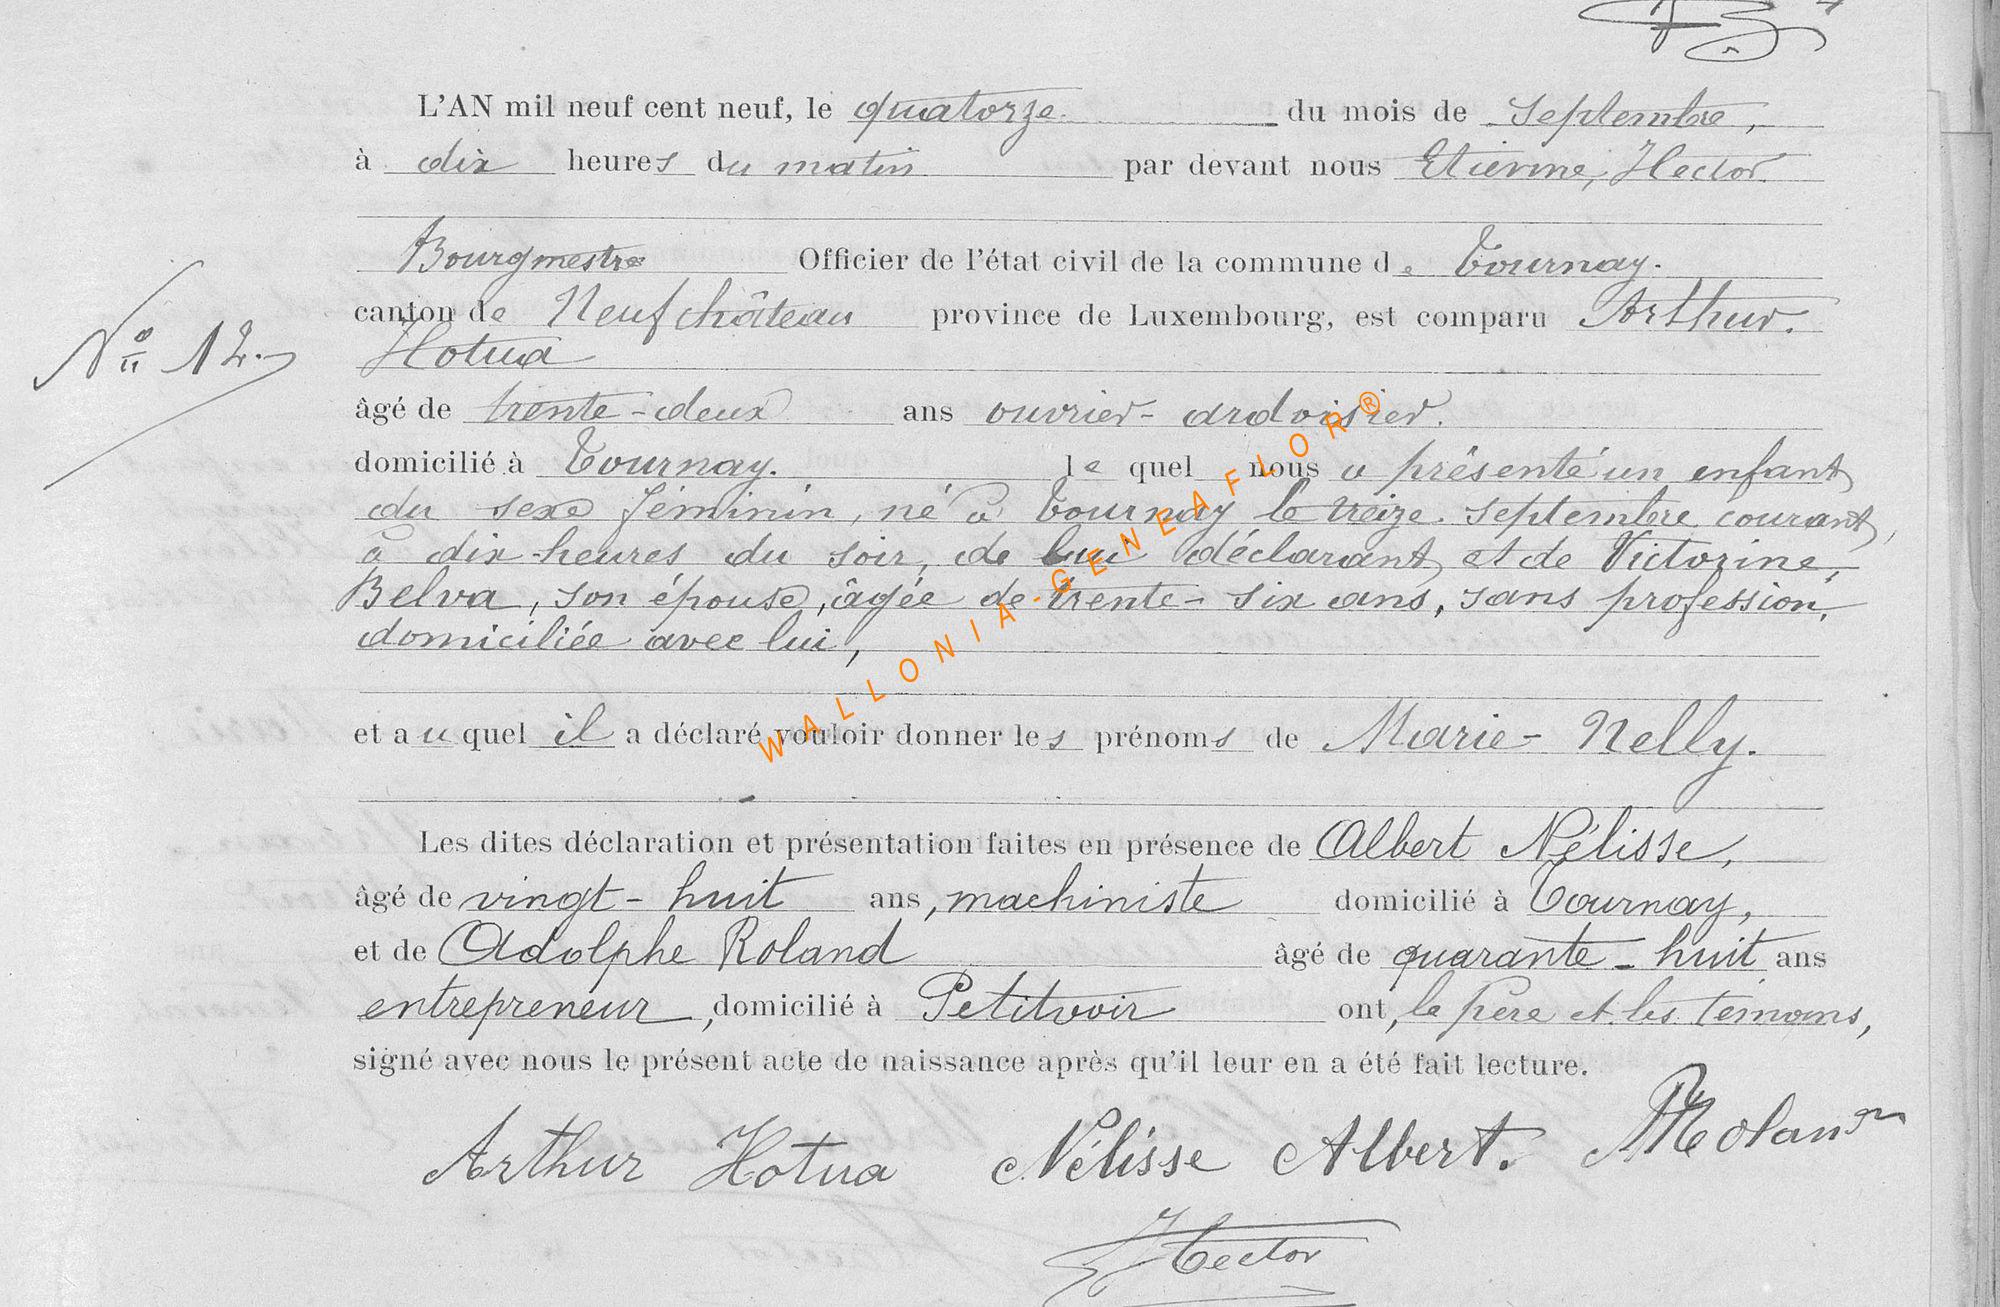 L'AN mil neuf cent neuf, le quatorze du mois de septembre,
à dix heures du matin par devant nous Etienne, Hector.
Bourgmestre Officier de l'état civil de la commune de Tournay.
canton de Neufchâteau province de Luxembourg, est comparu Arthur.
Hotua
N° 12.
âgé de trente-deux ans ouvrier-ardoisier.
domicilié à Tournay. le quel nous a présenté un enfant
du sexe féminin, né à Tournay le treize septembre courant,
à dix heures du soir, de lui déclarant et de Victorine,
Belva, son épouse, âgée de trente-six ans, sans profession,
domiciliée avec lui,
et auquel il a déclaré vouloir donner les prénoms de Marie-Nelly.
Les dites déclaration et présentation faites en présence de Albert Nélisse,
âgé de vingt-huit ans, machiniste domicilié à Tournay,
et de Adolphe Roland âgé de quarante-huit ans
entrepreneur, domicilié à Petitvoir ont, le père et les témoins,
signé avec nous le présent acte de naissance après qu'il leur en a été fait lecture.
Arthur Hotua Nélisse Albert.
Hector
WALLONIA-GENEAFLOR®